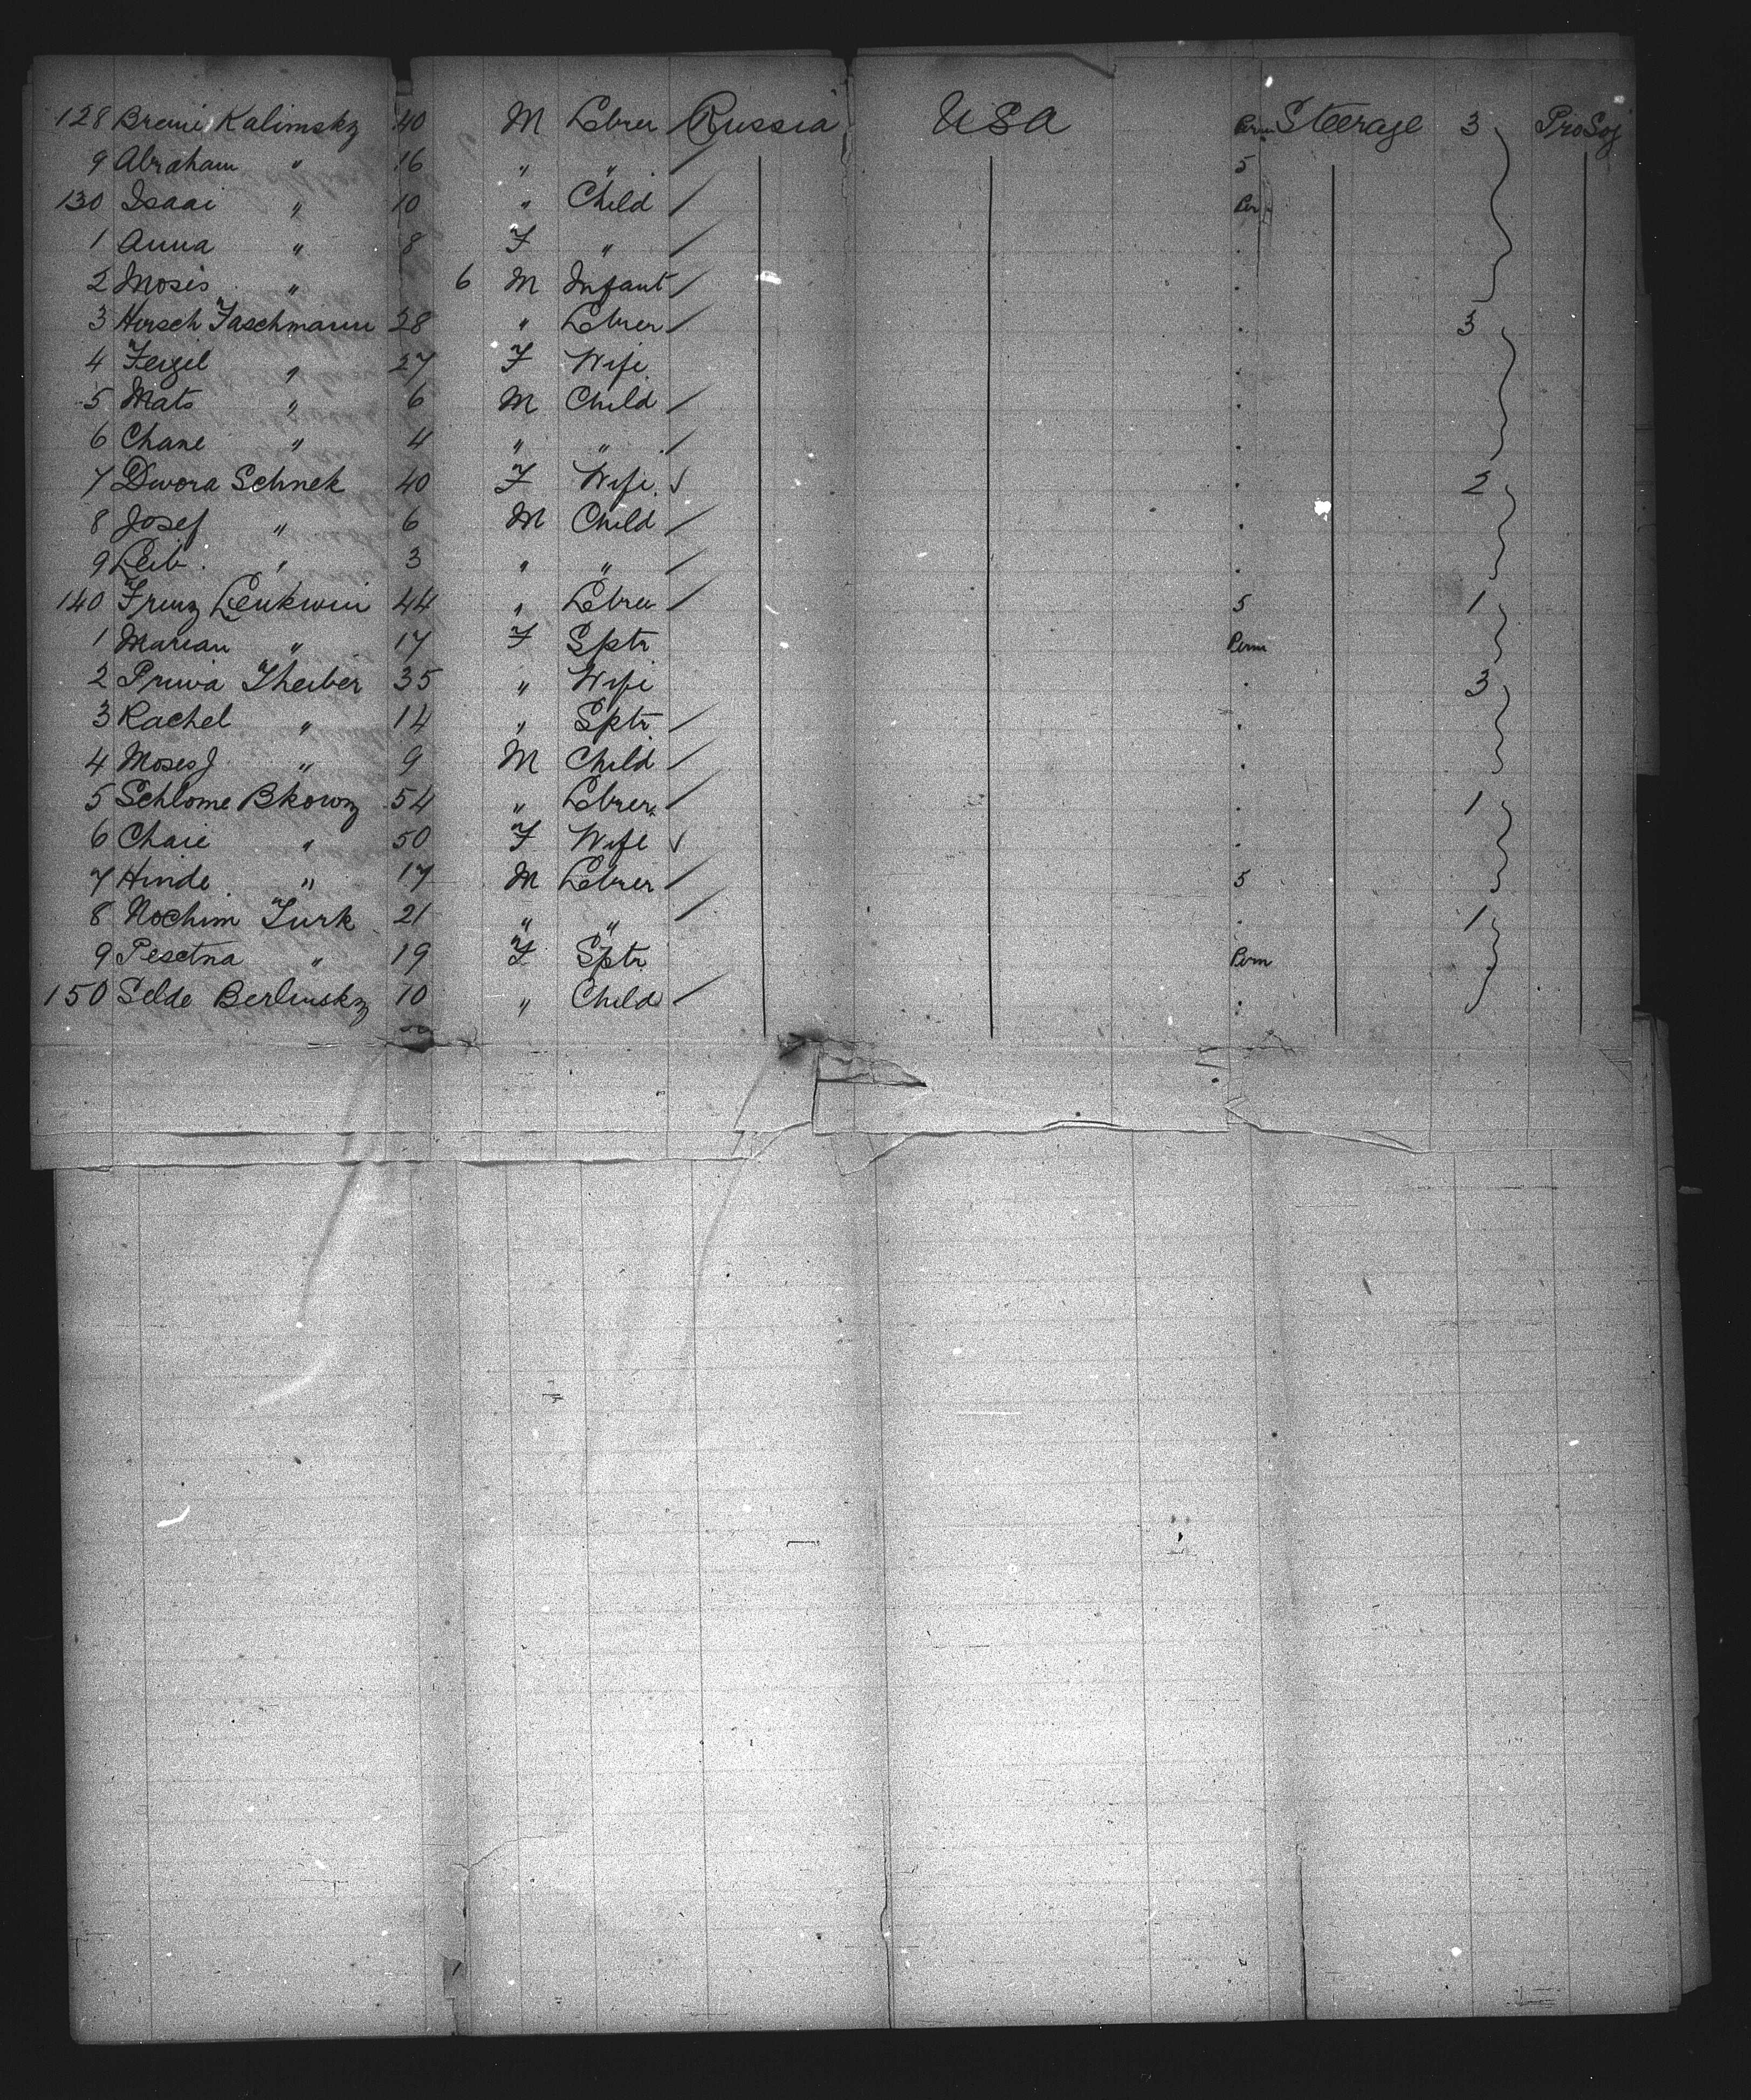 128 Breine Kalimsky 40 M Lebrer Russia USA Perm Steerage 3 ProSoj
9 Abraham " 16 " " 5
130 Isaac " 10 " Child Per
1 Anna " 8 F "
2 Moses " 6 M Infant
3 Hirsch Taschmann 28 " Lebrer 3
4 Feigel " 27 F Wife
5 Mats " 6 M Child
6 Chane " 4 " "
7 Dwora Schnek 40 F Wife 2
8 Josef " 6 M Child
9 Leib " 3 " "
140 44 " Lebrer 5 1
1 Marian " 17 F Sptr Perm
2 Theiber 35 " Wife 3
3 Rachel " 14 " Sptr
4 Moses J " 9 M Child
5 Schlome Bkowz 54 " Lebrer 1
6 Chaie " 50 F Wife
7 Hinde " 17 M Lebrer 5
8 Nochim Turk 21 " " 1
9 Pesetna " 19 F Sptr Perm
150 Selde Berlinsky 10 " Child